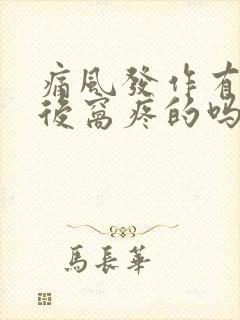 痛風發作有
後窩疼的嗎
馬長華